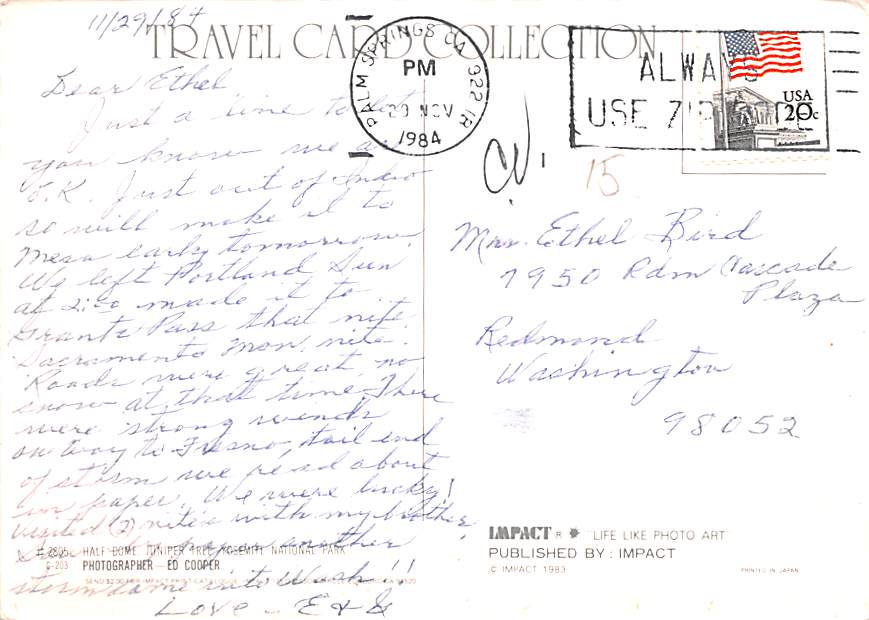 11/29/84
TRAVEL CARD COLLECTION
Dear Ethel
Just a line to let
you know we are
O.K. Just out of Indio
so will make it to
Mesa early tomorrow.
We left Portland Sun
at 2:00 made it to
Grants Pass that nite.
Sacramento Mon. nite.
Roads were great, no
snow at that time. There
were strong winds
on way to Fresno, tail end
of storm we read about
in paper. We were lucky!
Visited (2) nites with my brother,
another
storm came into Wash!!
Love - E & G
# 2805 HALF DOME JUNIPER TREE YOSEMITE NATIONAL PARK
G-203 PHOTOGRAPHER - ED COOPER
PALM SPRINGS CA 922
PM
29 NOV
1984
ALWAYS
USE ZIP CODE
USA
20c
15
Mrs. Ethel Bird
7950 Rdm Cascade
Plaza
Redmond
Washington
98052
IMPACT ® "LIFE LIKE PHOTO ART
PUBLISHED BY: IMPACT
© IMPACT 1983
PRINTED IN JAPAN